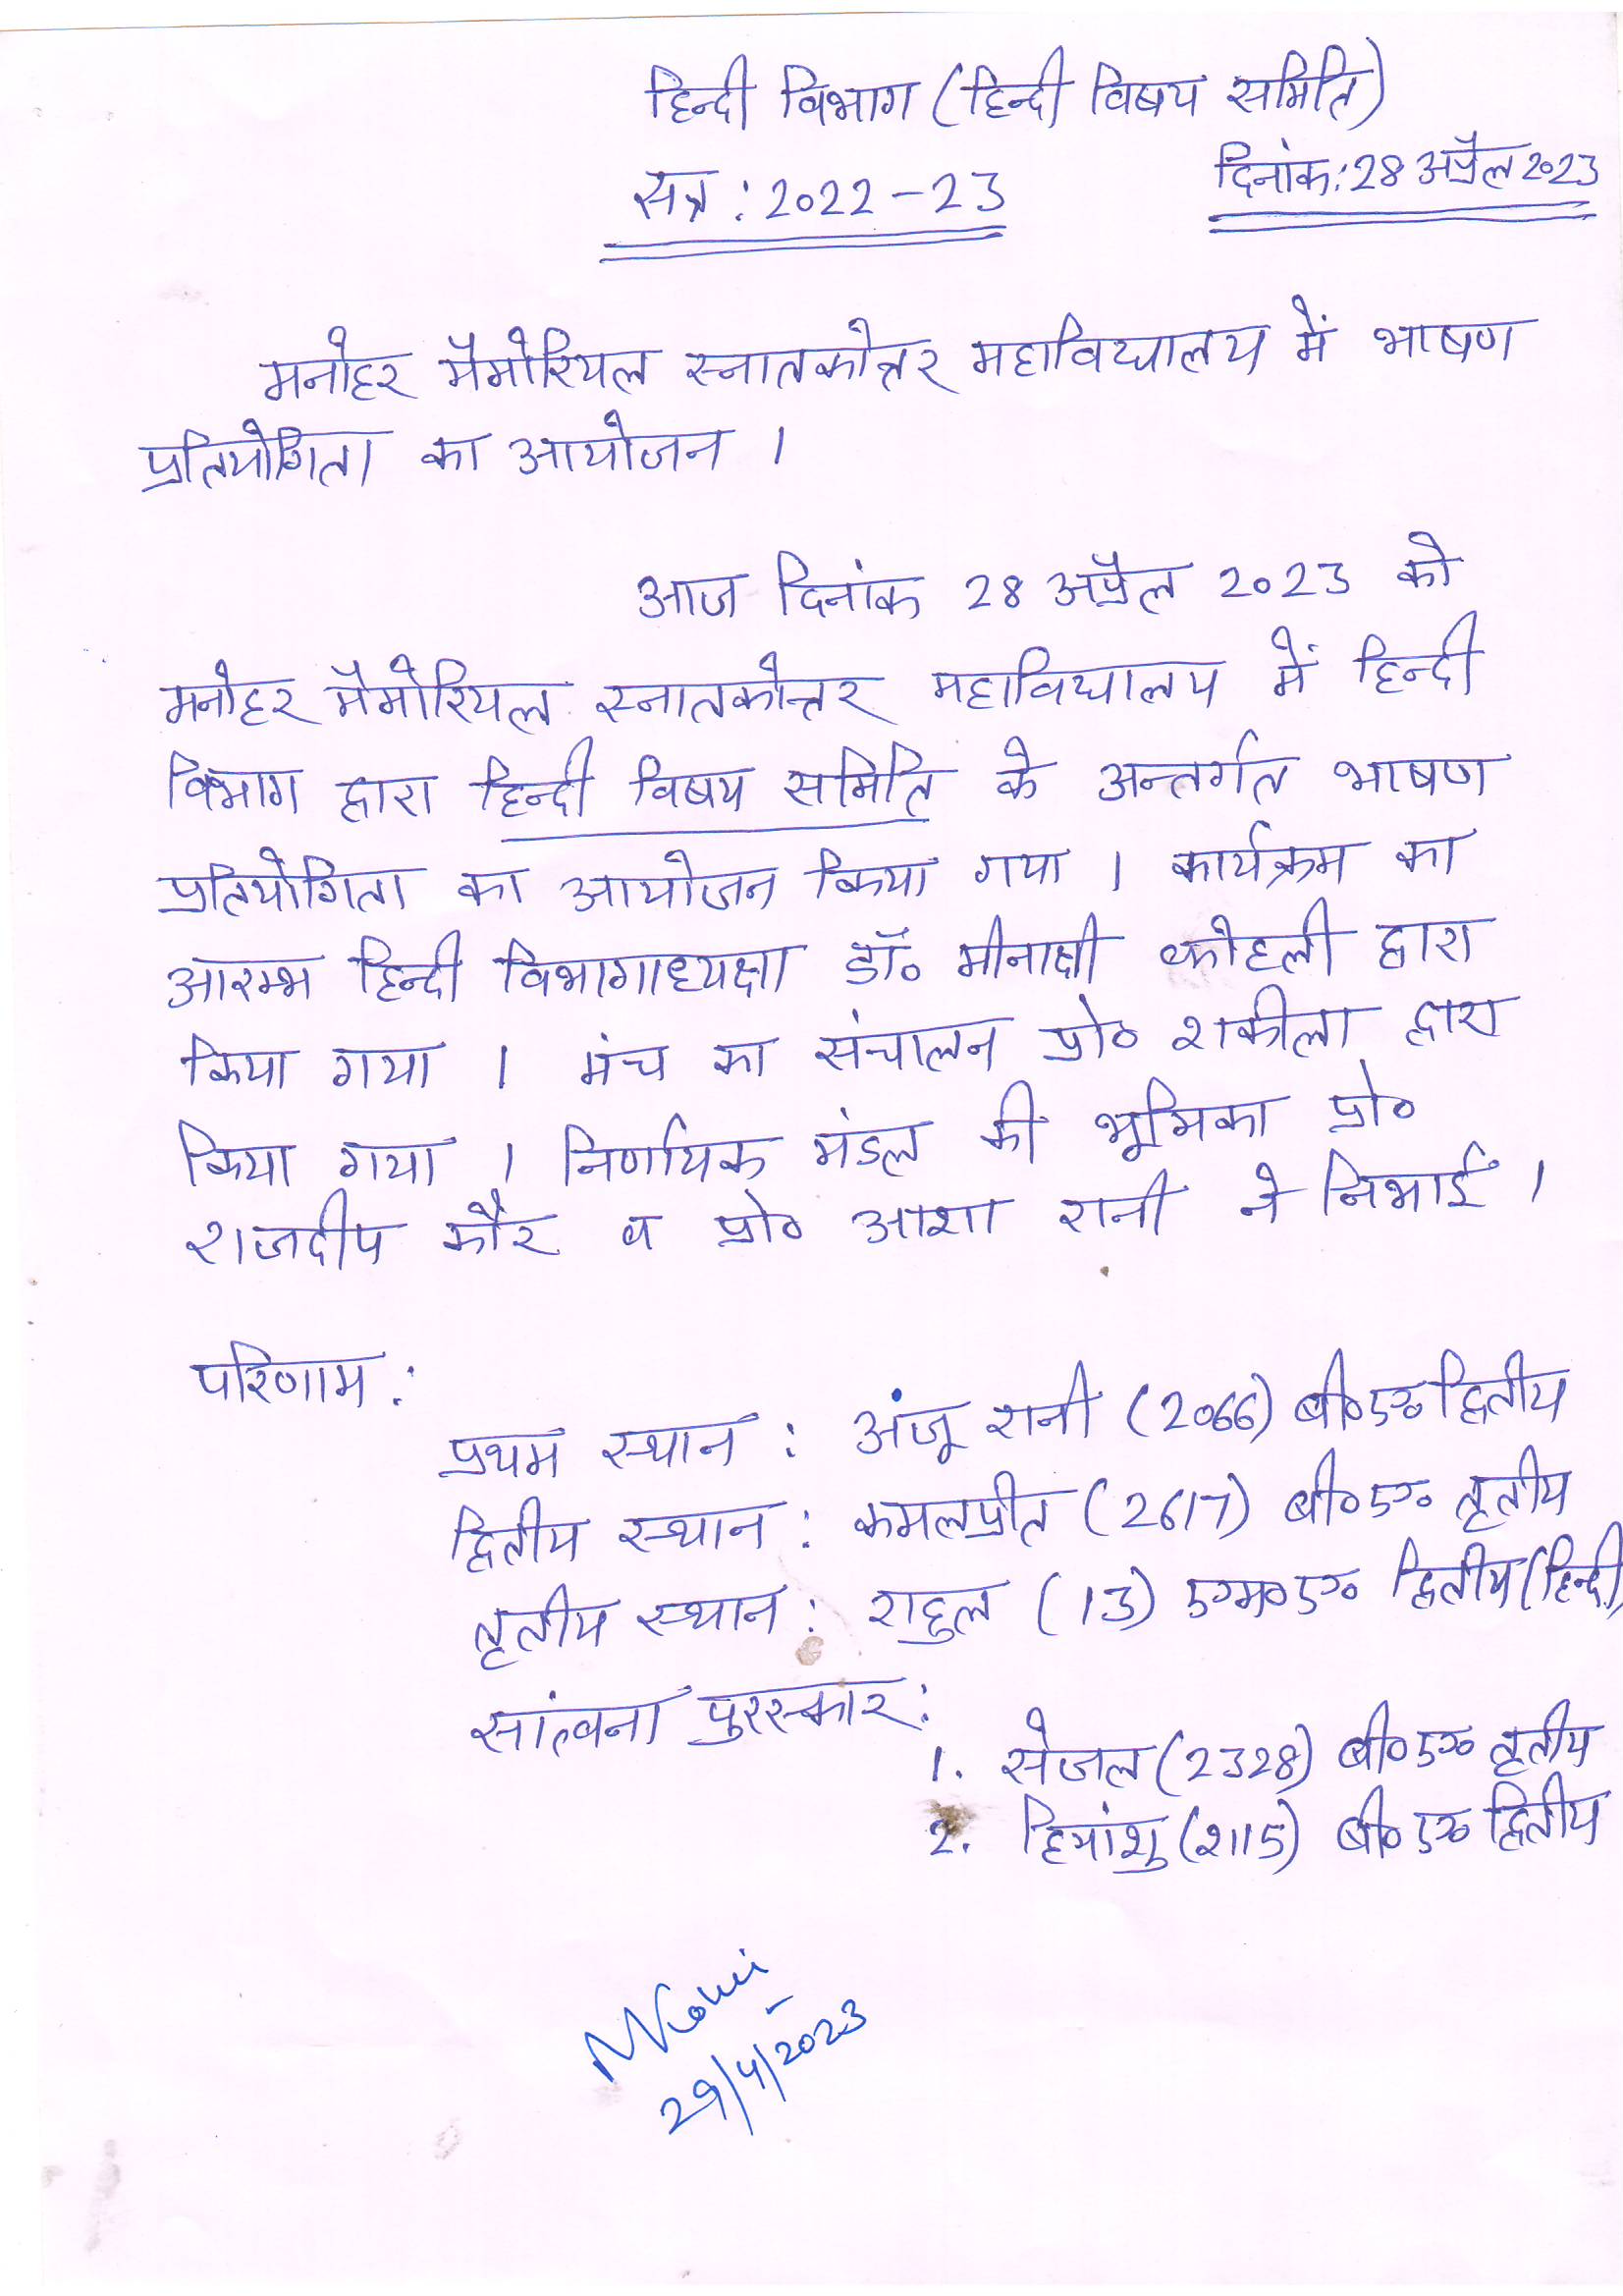 हिन्दी विभाग (हिन्दी विषय समिति)
सत्र : 2022-23
दिनांक: 28 अप्रैल 2023
मनोहर मैमोरियल स्नातकोत्तर महाविद्यालय में भाषण
प्रतियोगिता का आयोजन ।
आज दिनांक 28 अप्रैल 2023 को
मनोहर मैमोरियल स्नातकोत्तर महाविद्यालय में हिन्दी
विभाग द्वारा हिन्दी विषय समिति के अन्तर्गत भाषण
प्रतियोगिता का आयोजन किया गया । कार्यक्रम का
आरम्भ हिन्दी विभागाध्यक्षा डॉ० मीनाक्षी कोहली द्वारा
किया गया । मंच का संचालन प्रो० शकीला द्वारा
किया गया । निर्णायक मंडल की भूमिका प्रो०
राजदीप कौर व प्रो० आशा रानी ने निभाई ।
परिणाम :
प्रथम स्थान : अंजू रानी (2066) बी०ए० द्वितीय
द्वितीय स्थान : कमलप्रीत (2617) बी०ए० तृतीय
तृतीय स्थान : राहुल (13) एम०ए० द्वितीय (हिन्दी)
सांत्वना पुरस्कार :
1. सेजल (2328) बी०ए० तृतीय
2. हिमांशु (2115) बी०ए० द्वितीय
29/4/2023